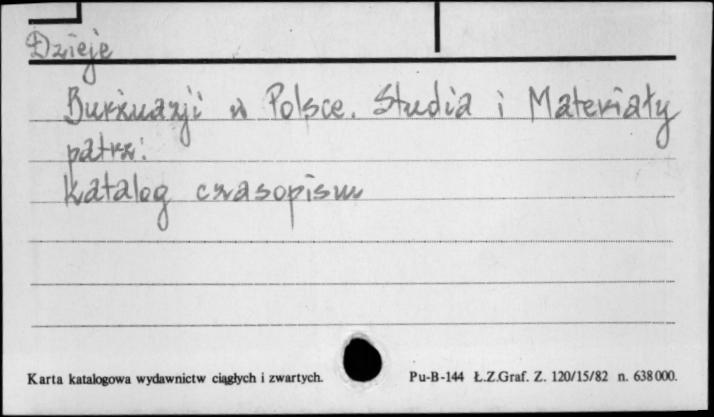 Dzieje
Burżuazji w Polsce. Studia i Materiały
patrz:
Katalog czasopism
Karta katalogowa wydawnictw ciągłych i zwartych. Pu-B-144 Ł.Z.Graf. Z. 120/15/82 n. 638000.